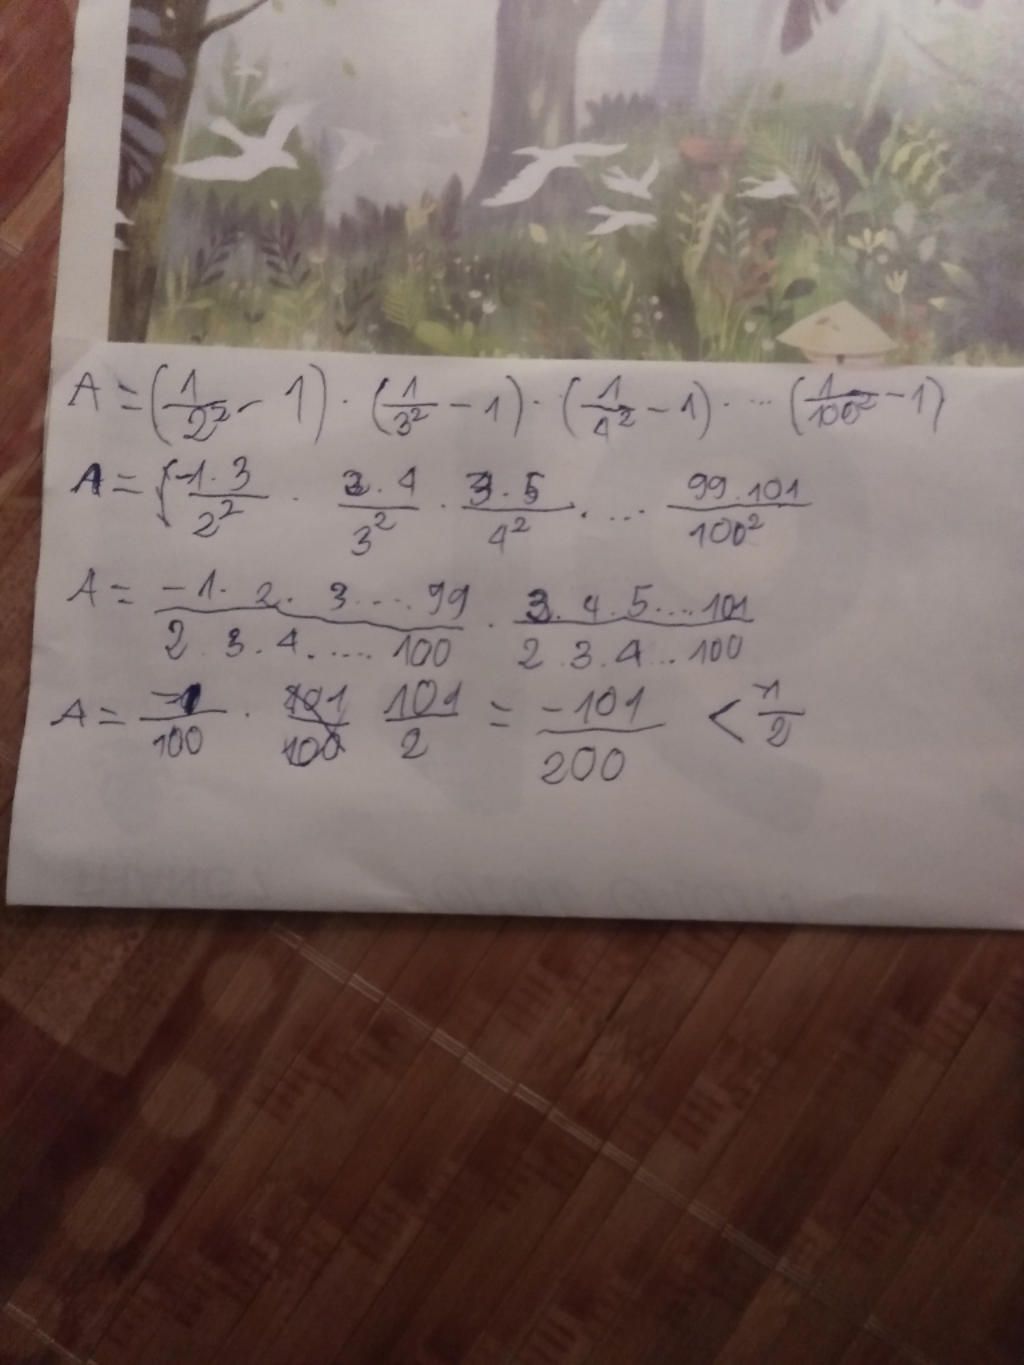 A = (1/2² - 1) · (1/3² - 1) · (1/4² - 1) · ... (1/100² - 1)
A = (-1.3/2² · 2.4/3² · 3.5/4² · ... 99.101/100²
A = -1. 2. 3....99/2.3.4.....100 · 3.4.5....101/2.3.4...100
A = -1/100 · 101/2 = -101/200 < -1/2